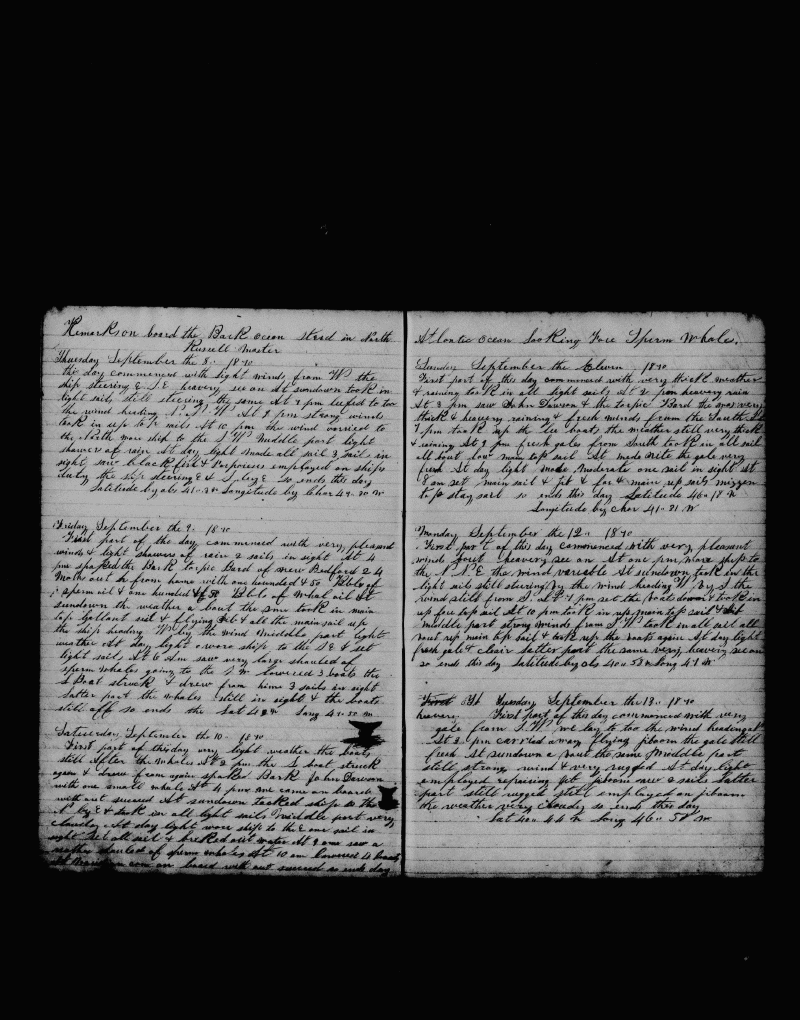 Remarks on board the Bark Ocean Stead in North
Russell Master
Thursday September the 8 1870
this day commenced with light winds from W the
ship steering E.S.E heavey sea on At sundown took in
light sails still steering the same At 7 pm luufed to too
the wind heading N.N.W At 8 pm strong winds
took in up top sails At 10 pm the wind varried to
the North wore ship to the S.W Middle part light
shower of rain At day light made all sail 3 sails in
sight saw black fish & Porpoises employed on ships
duty the ship steering E & S by E so ends this day
Latitude by obs 41-32 Longitude by Chor 42-20 W
Friday September the 9 1870
First part of the day commenced with very pleasant
winds & light showers of rain 2 sails in sight At 4
pm spoke the Bark Tropic Bird of New Bedford 24
Months out from home with one hundred & 50 Bbls of
sperm oil & one hundred & 50 Bbls of Whal oil At
sundown the weather a bout the same took in main
top Gallant sail & flying jib & all the main sail up
the ship heading W by the wind Middle part light
weather At day light wore ship to the S.E & set
light sail At 6 Am saw very large shauled of
sperm whales going to the S.W lowered 3 boats the
S Boat struck & drew from him 3 sails in sight
Latter part the whales still in sight & the boats
still off so ends the Lat 40 N Long 42-30 W
Saturday September the 10 1870
First part of this day very light weather the boats
still After the whales At 2 pm the S boat struck
again & drew from again spoke Bark John Dawson
with one small whale At 4 pm we came on board
with out succeed At sundown tacked ship to the
N by E & took in all light sails Middle part very
cloudy At day light wore ship to the E one sail in
sight set all sail & breked out water At 9 am saw a
shauled of sperm whales At 10 am lowered 4 boats
At Noon we com on board with out succeed so ends day
Atlantic Ocean Looking Fore Sperm Whale.
Sunday September the Eleven 1870
First part of this day commenced with very thick weather
& raining took in all light sails At 2 pm heavy rain
At 3 pm saw John Dawson & the Torpic Bird the sea very
thick & heavery raining & fresh winds from the South At
7 pm took up the lee boats the weather still very thick
& raining At 9 pm fresh gales from South took in all sail
all bout low main top sail At mede nite the gale very
fresh At day light more moderate one sail in sight At
8 am set main sail & jib & for & main up sails mizzen
top stay sail so ends this day Latitude 40-18 N
Longitude by chor 41-21 W
Monday September the 12 1870
First part of this day commenced with very pleasant
winds fruet heavery sea on At one pm wore ship to
the N.N.E the wind variable At sundown took in the
light sails still steering by the wind heading W by S the
wind still from S At 7 pm set the boats down & took in
up fore top sail At 10 pm took in up main top sail & jib
middle part strong winds from S.W took in all sail all
bout up main top sail & took up the boats again At day light
fresh gale & clear Latter part the same very heavery sea on
so ends this day Latitude by obs 40-53 Long 47 W
Tuesday September the 13 1870
heavery First part of this day commenced with very
gale from S.W we lay to too the wind heading
At 3 pm carried a way flying jiboom the gale still
fresh At sundown a bout the same Middle part
still strong wind & very rugged At day light
employed repairing jib jiboom saw 2 sails Latter
part still rugged still employed on jiboom
the weather very cloudy so ends this day
Lat 40-46 N Long 46-58 W